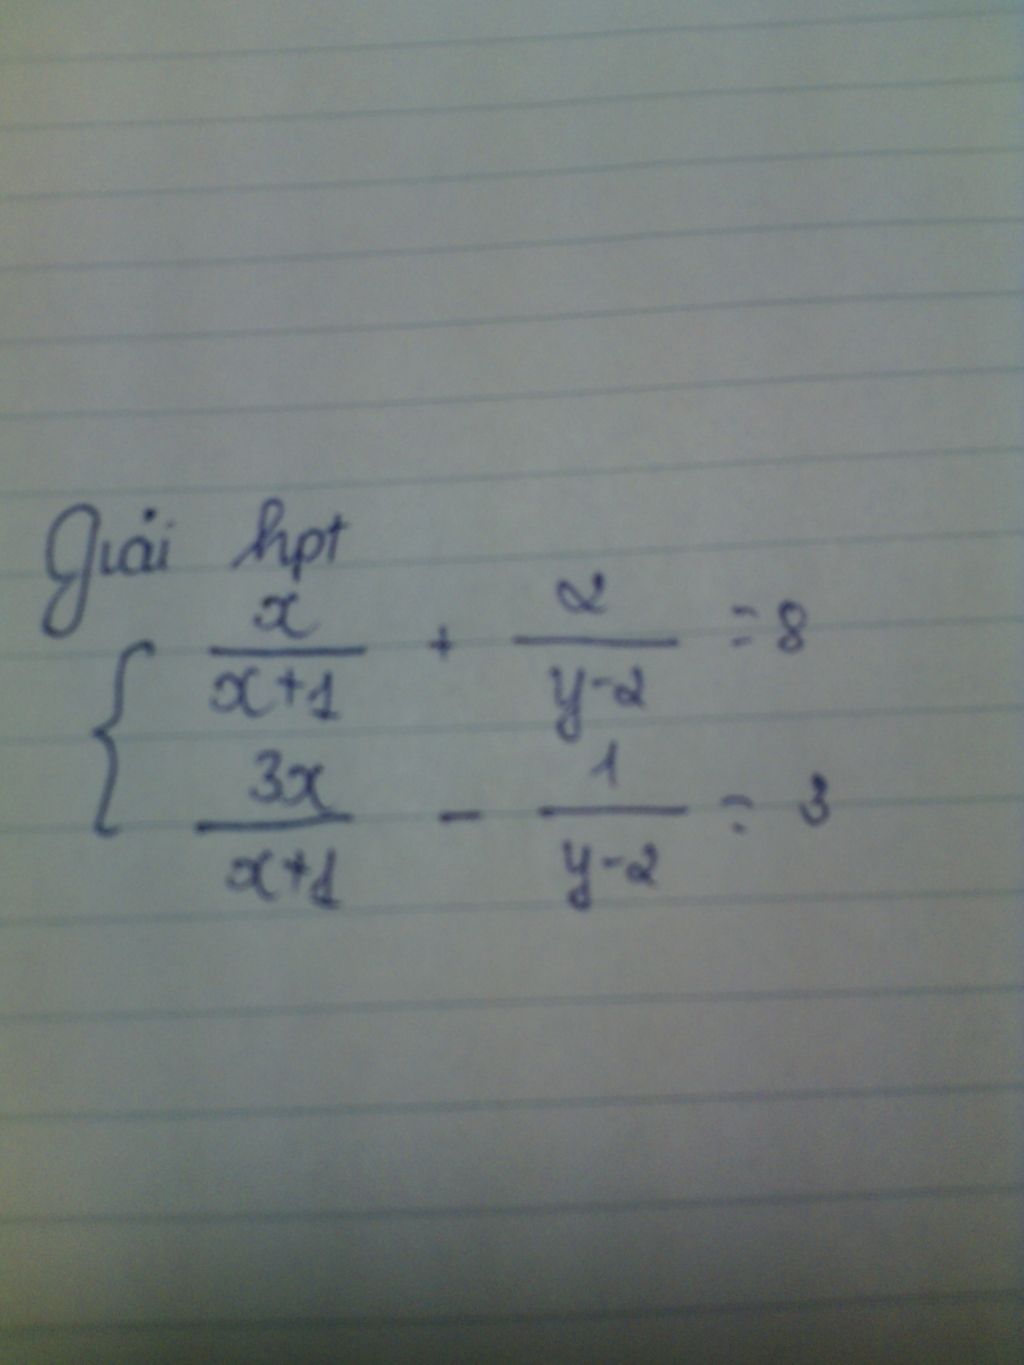 Giải hpt
{ x/(x+1) + 2/(y-2) = 8
3x/(x+1) - 1/(y-2) = 3